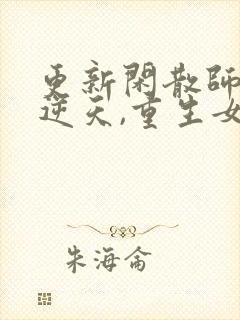 更新閑散師
逆天,重生女
朱海侖